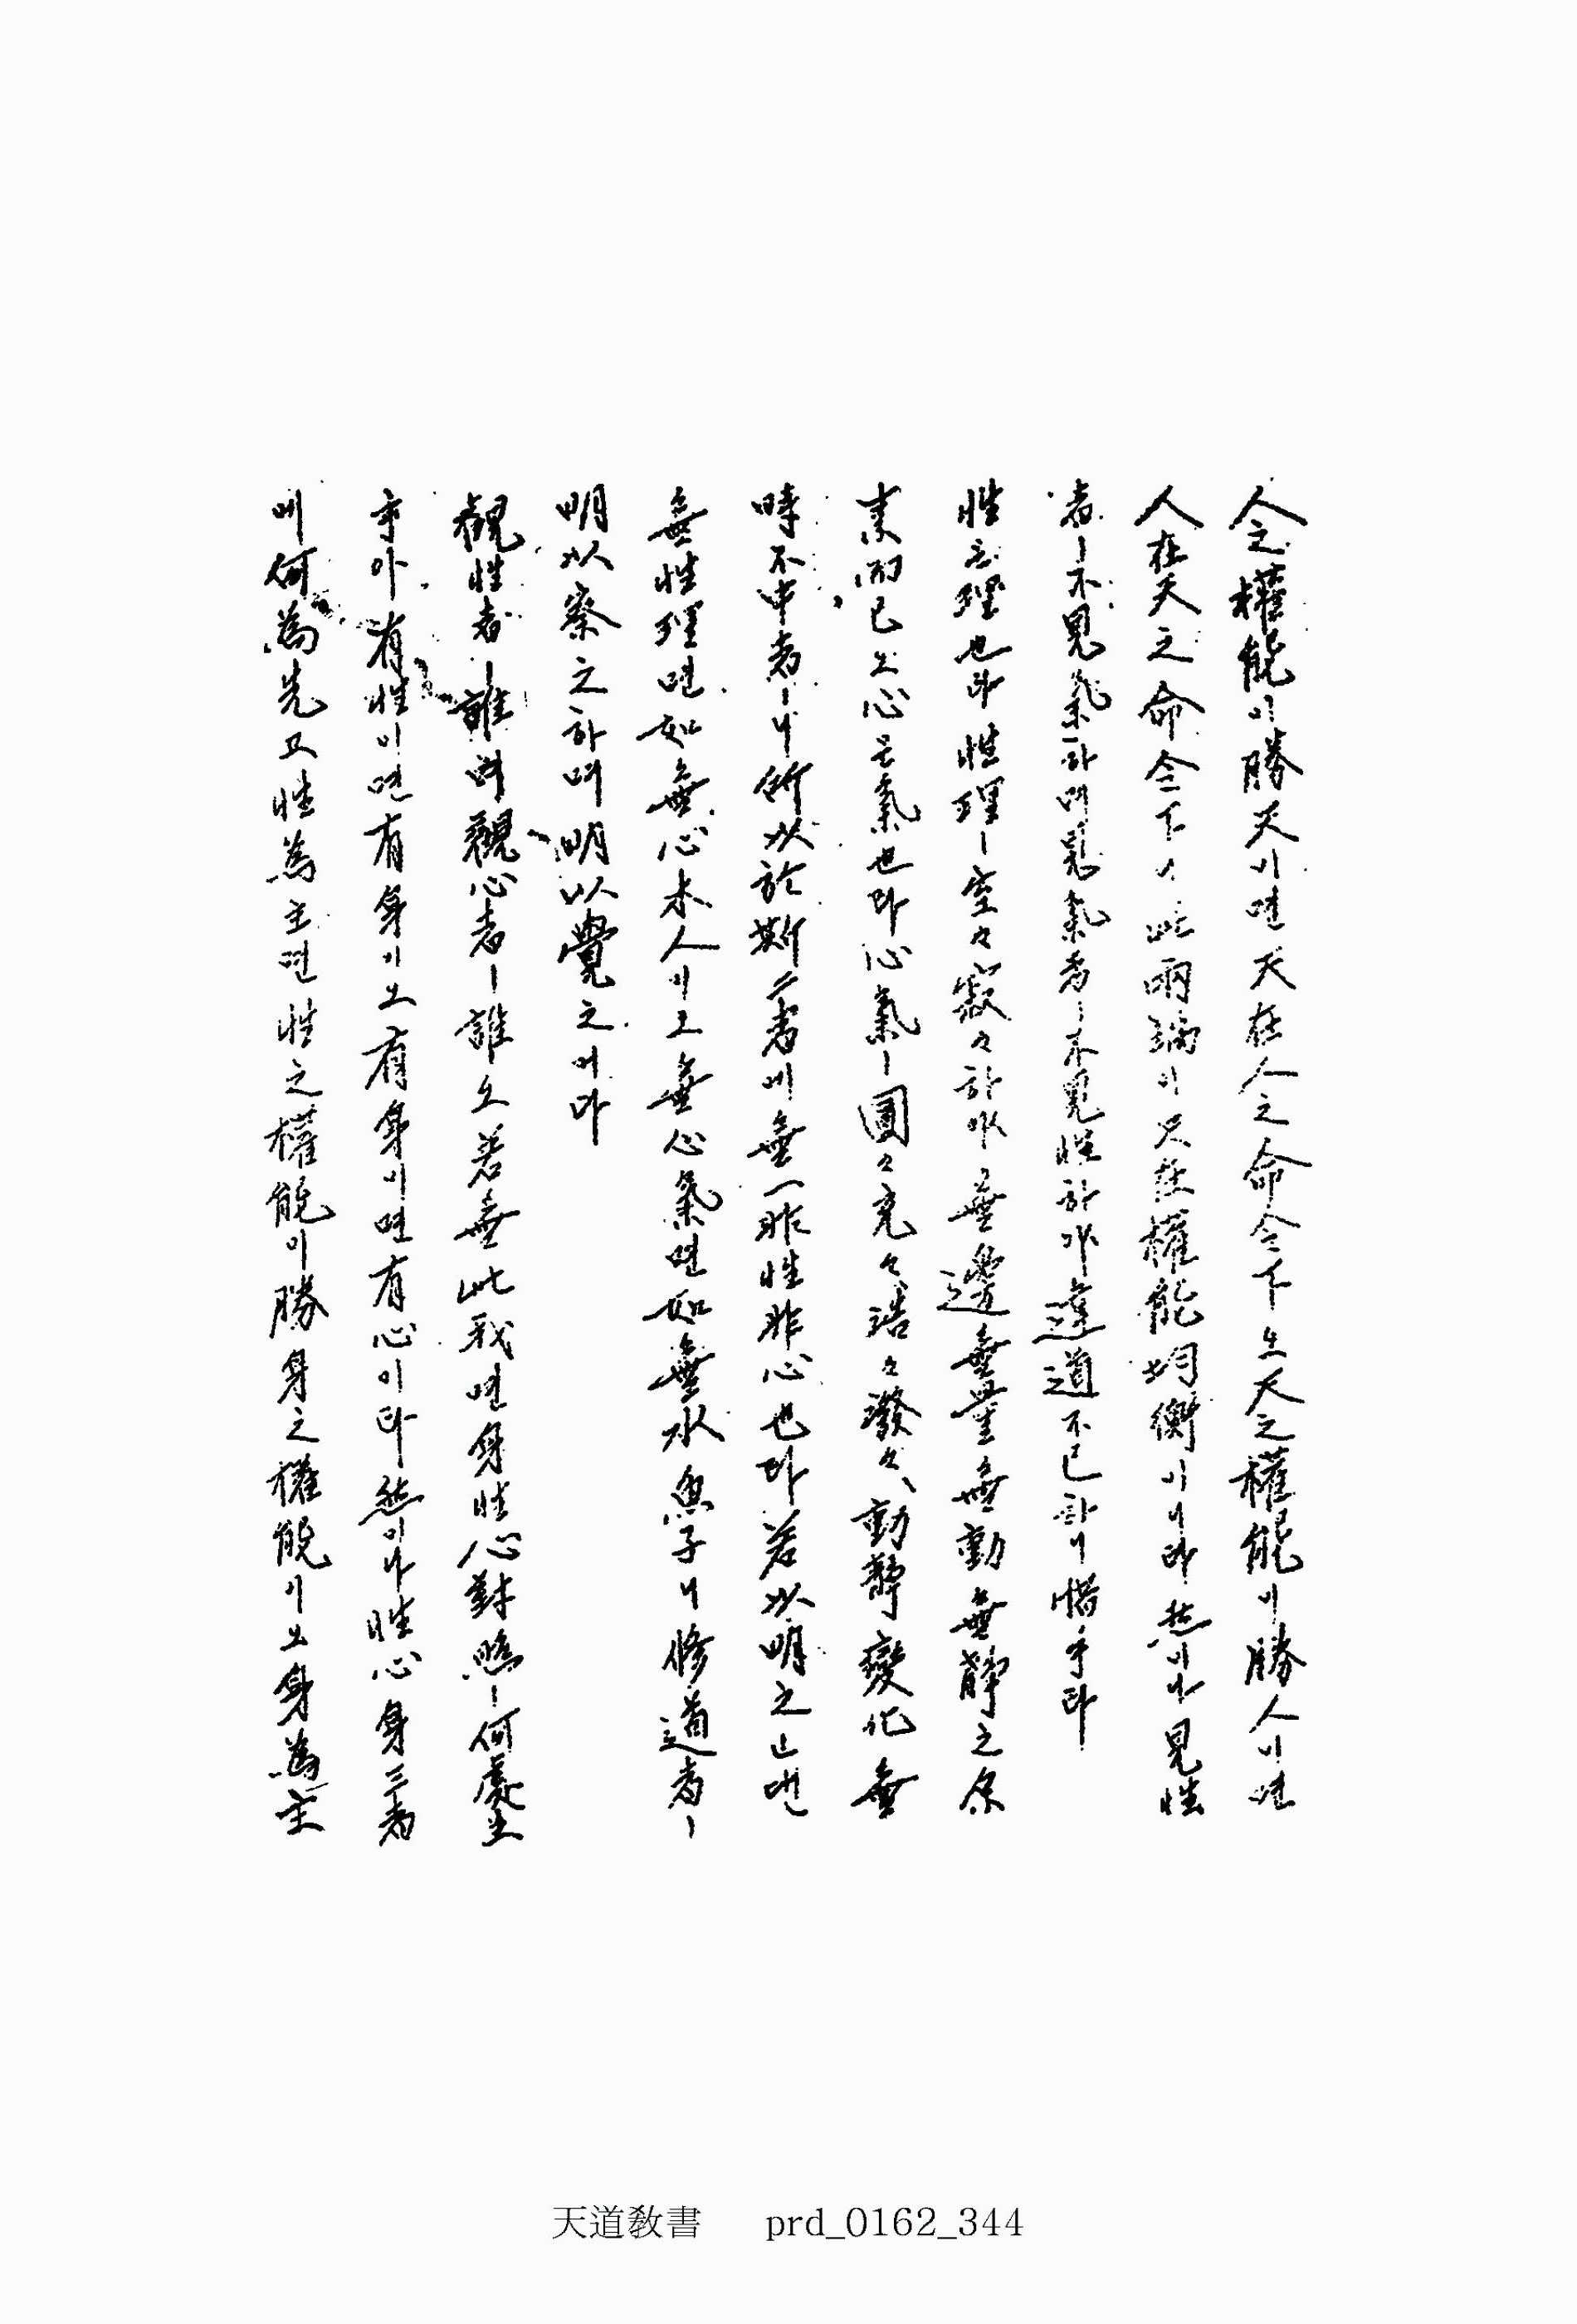 人之權能이勝天이면天在人之命令下오天之權能이勝人이면
人在天之命令下니此兩端이只在權能均衡이니라然이나見性
者ㅣ不見氣하며見氣者ㅣ不見性하야違道不已하니惜乎라
性은理也라性理ㅣ空々寂々하야無邊無量無動無靜之原
素而已오心은氣也라心氣ㅣ圓々充々浩々潑々、動靜變化無
時不中者ㅣ니所以於斯二者에無一非性非心也라若以明之ㄴ댄
無性理면如無心木人이오無心氣면如無水魚子니修道者ㅣ
明以察之하며明以覺之어다
觀性者ㅣ誰며觀心者ㅣ誰오若無此我면身性心對照ㅣ何處生
乎아有性이면有身이오有身이면有心이라然이나性心身三者
에何爲先고性爲主면性之權能이勝身之權能이오身爲主
天道教書 prd_0162_344